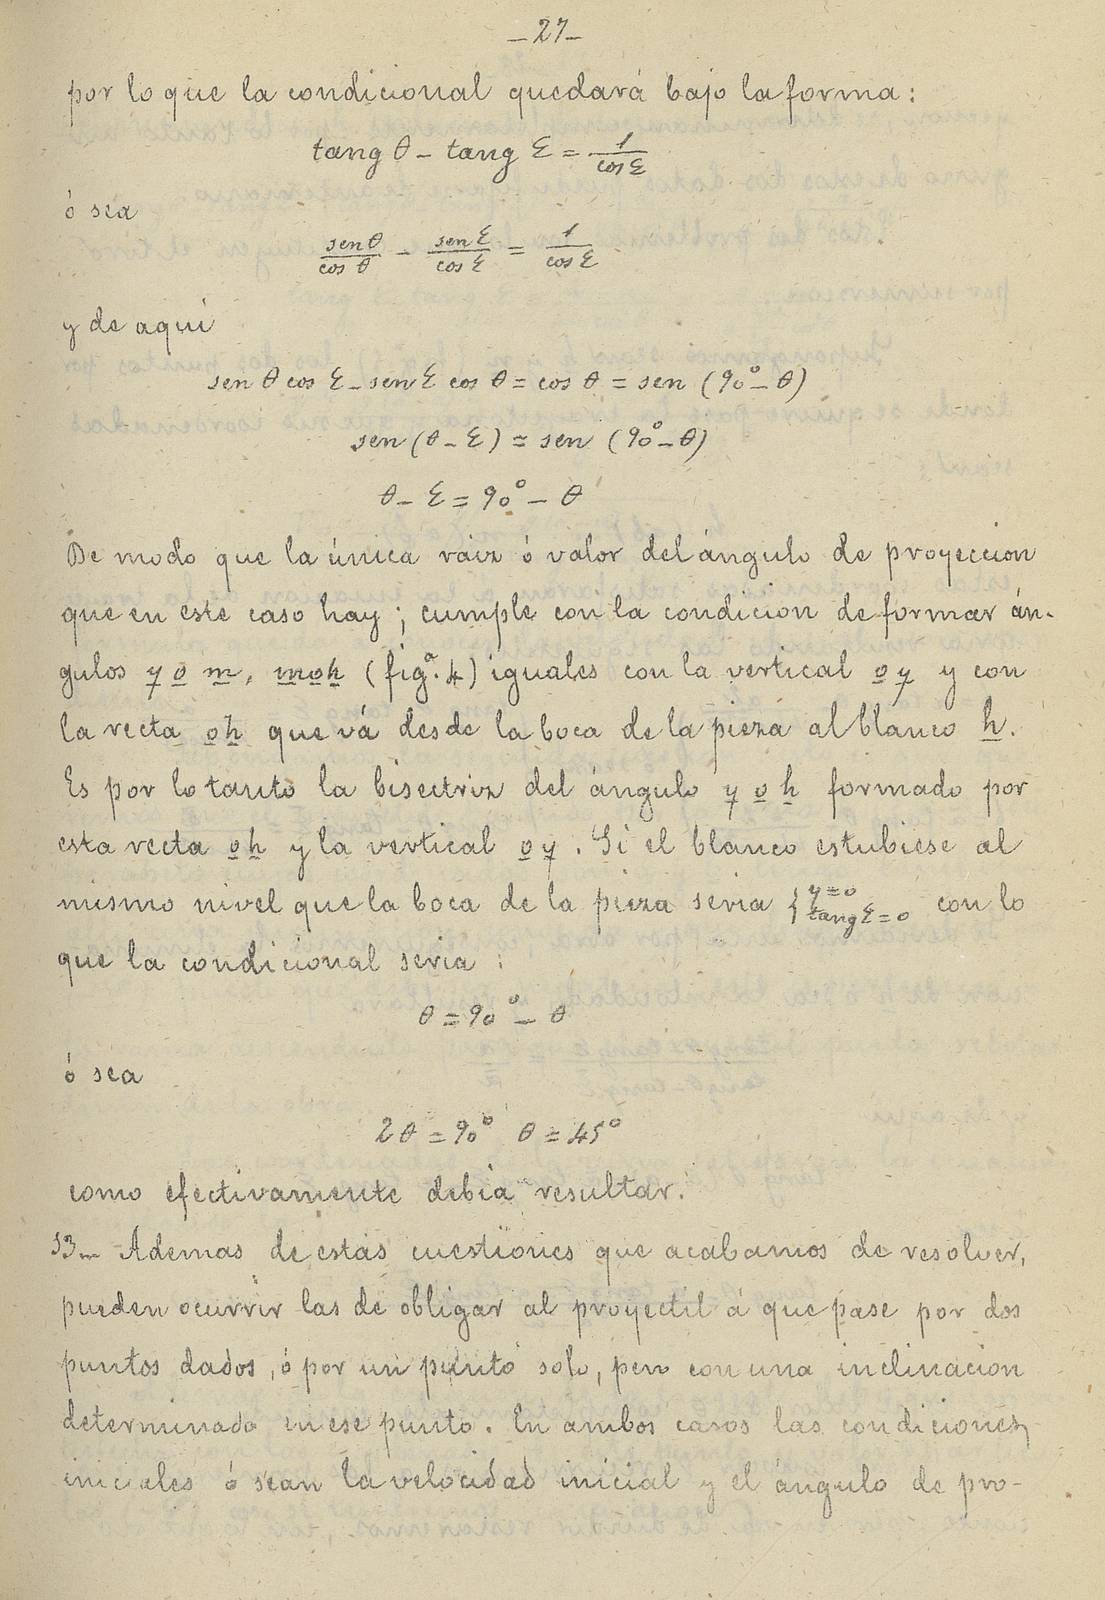 _27_
por lo que la condicional quedará bajo la forma:
tang θ - tang Ɛ = 1/cos Ɛ
ó sea
sen θ/cos θ - sen Ɛ/cos Ɛ = 1/cos Ɛ
y de aquí
sen θ cos Ɛ - sen Ɛ cos θ = cos θ = sen (90° - θ)
sen (θ - Ɛ) = sen (90° - θ)
θ - Ɛ = 90° - θ
De modo que la única raiz ó valor del ángulo de proyeccion
que en este caso hay; cumple con la condicion de formar án-
gulos y o m, moh (figª. 4) iguales con la vertical oy y con
la recta oh que vá desde la boca de la pieza al blanco h.
Es por lo tanto la bisectriz del ángulo y o h formado por
esta recta oh y la vertical oy. Si el blanco estubiese al
mismo nivel que la boca de la pieza seria { y=0 tang Ɛ=0 con lo
que la condicional seria:
θ = 90° - θ
ó sea
2θ = 90° θ = 45°
como efectivamente debia resultar.
13_ Ademas de estas cuestiones que acabamos de resolver,
pueden ocurrir las de obligar al proyectil á que pase por dos
puntos dados, ó por un punto solo, pero con una inclinacion
determinada en ese punto. En ambos casos las condiciones
iniciales ó sean la velocidad inicial y el ángulo de pro-